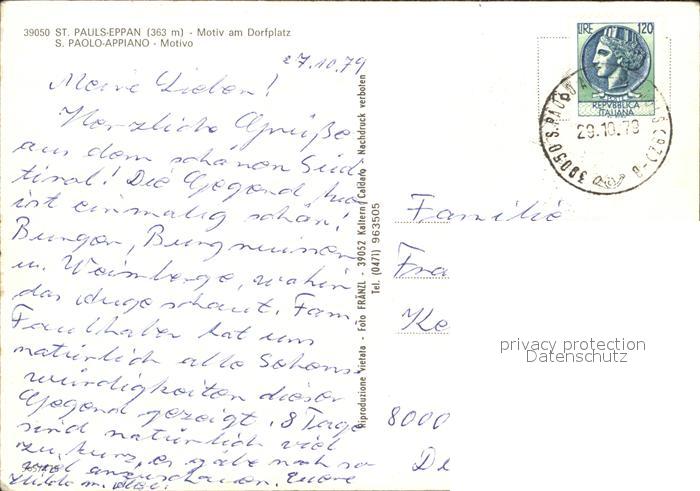 39050 ST. PAULS-EPPAN (363 m) - Motiv am Dorfplatz
S. PAOLO-APPIANO - Motivo
27.10.79
Meine Lieben!
Herzliche Grüße
aus dem schönen Süd
tirol! Die Gegend hier
ist einmalig schön!
Burgen, Burgruinen
u. Weinberge, wohin
das Auge schaut. Fam.
Faulhaber hat uns
natürlich alle Sehens-
würdigkeiten dieser
Gegend gezeigt. 8 Tage
sind natürlich viel
zu kurz, es gäbe noch so
viel anzuschauen. Euere
Hilde m.
Riproduzione Vietata - Foto FRÄNZL - 39052 Kaltern / Caldaro Nachdruck verboten
Tel. (0471) 963505
LIRE 120
REPVBBLICA
ITALIANA
39050 S. PAOLO
(BZ)
29.10.79
Familie
Fra
Ke
8000
privacy protection
Datenschutz